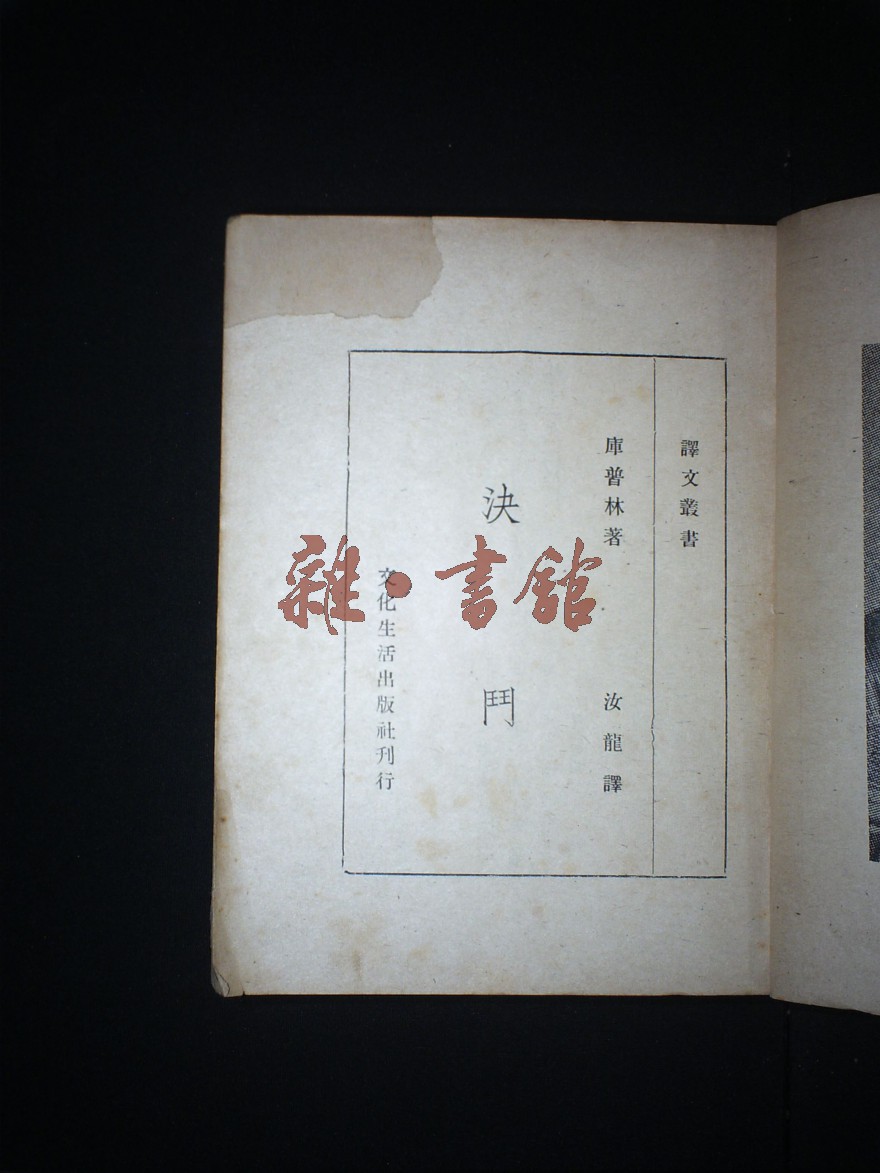 譯文叢書
庫普林著
汝龍譯
決鬥
文化生活出版社刊行
雜·書館